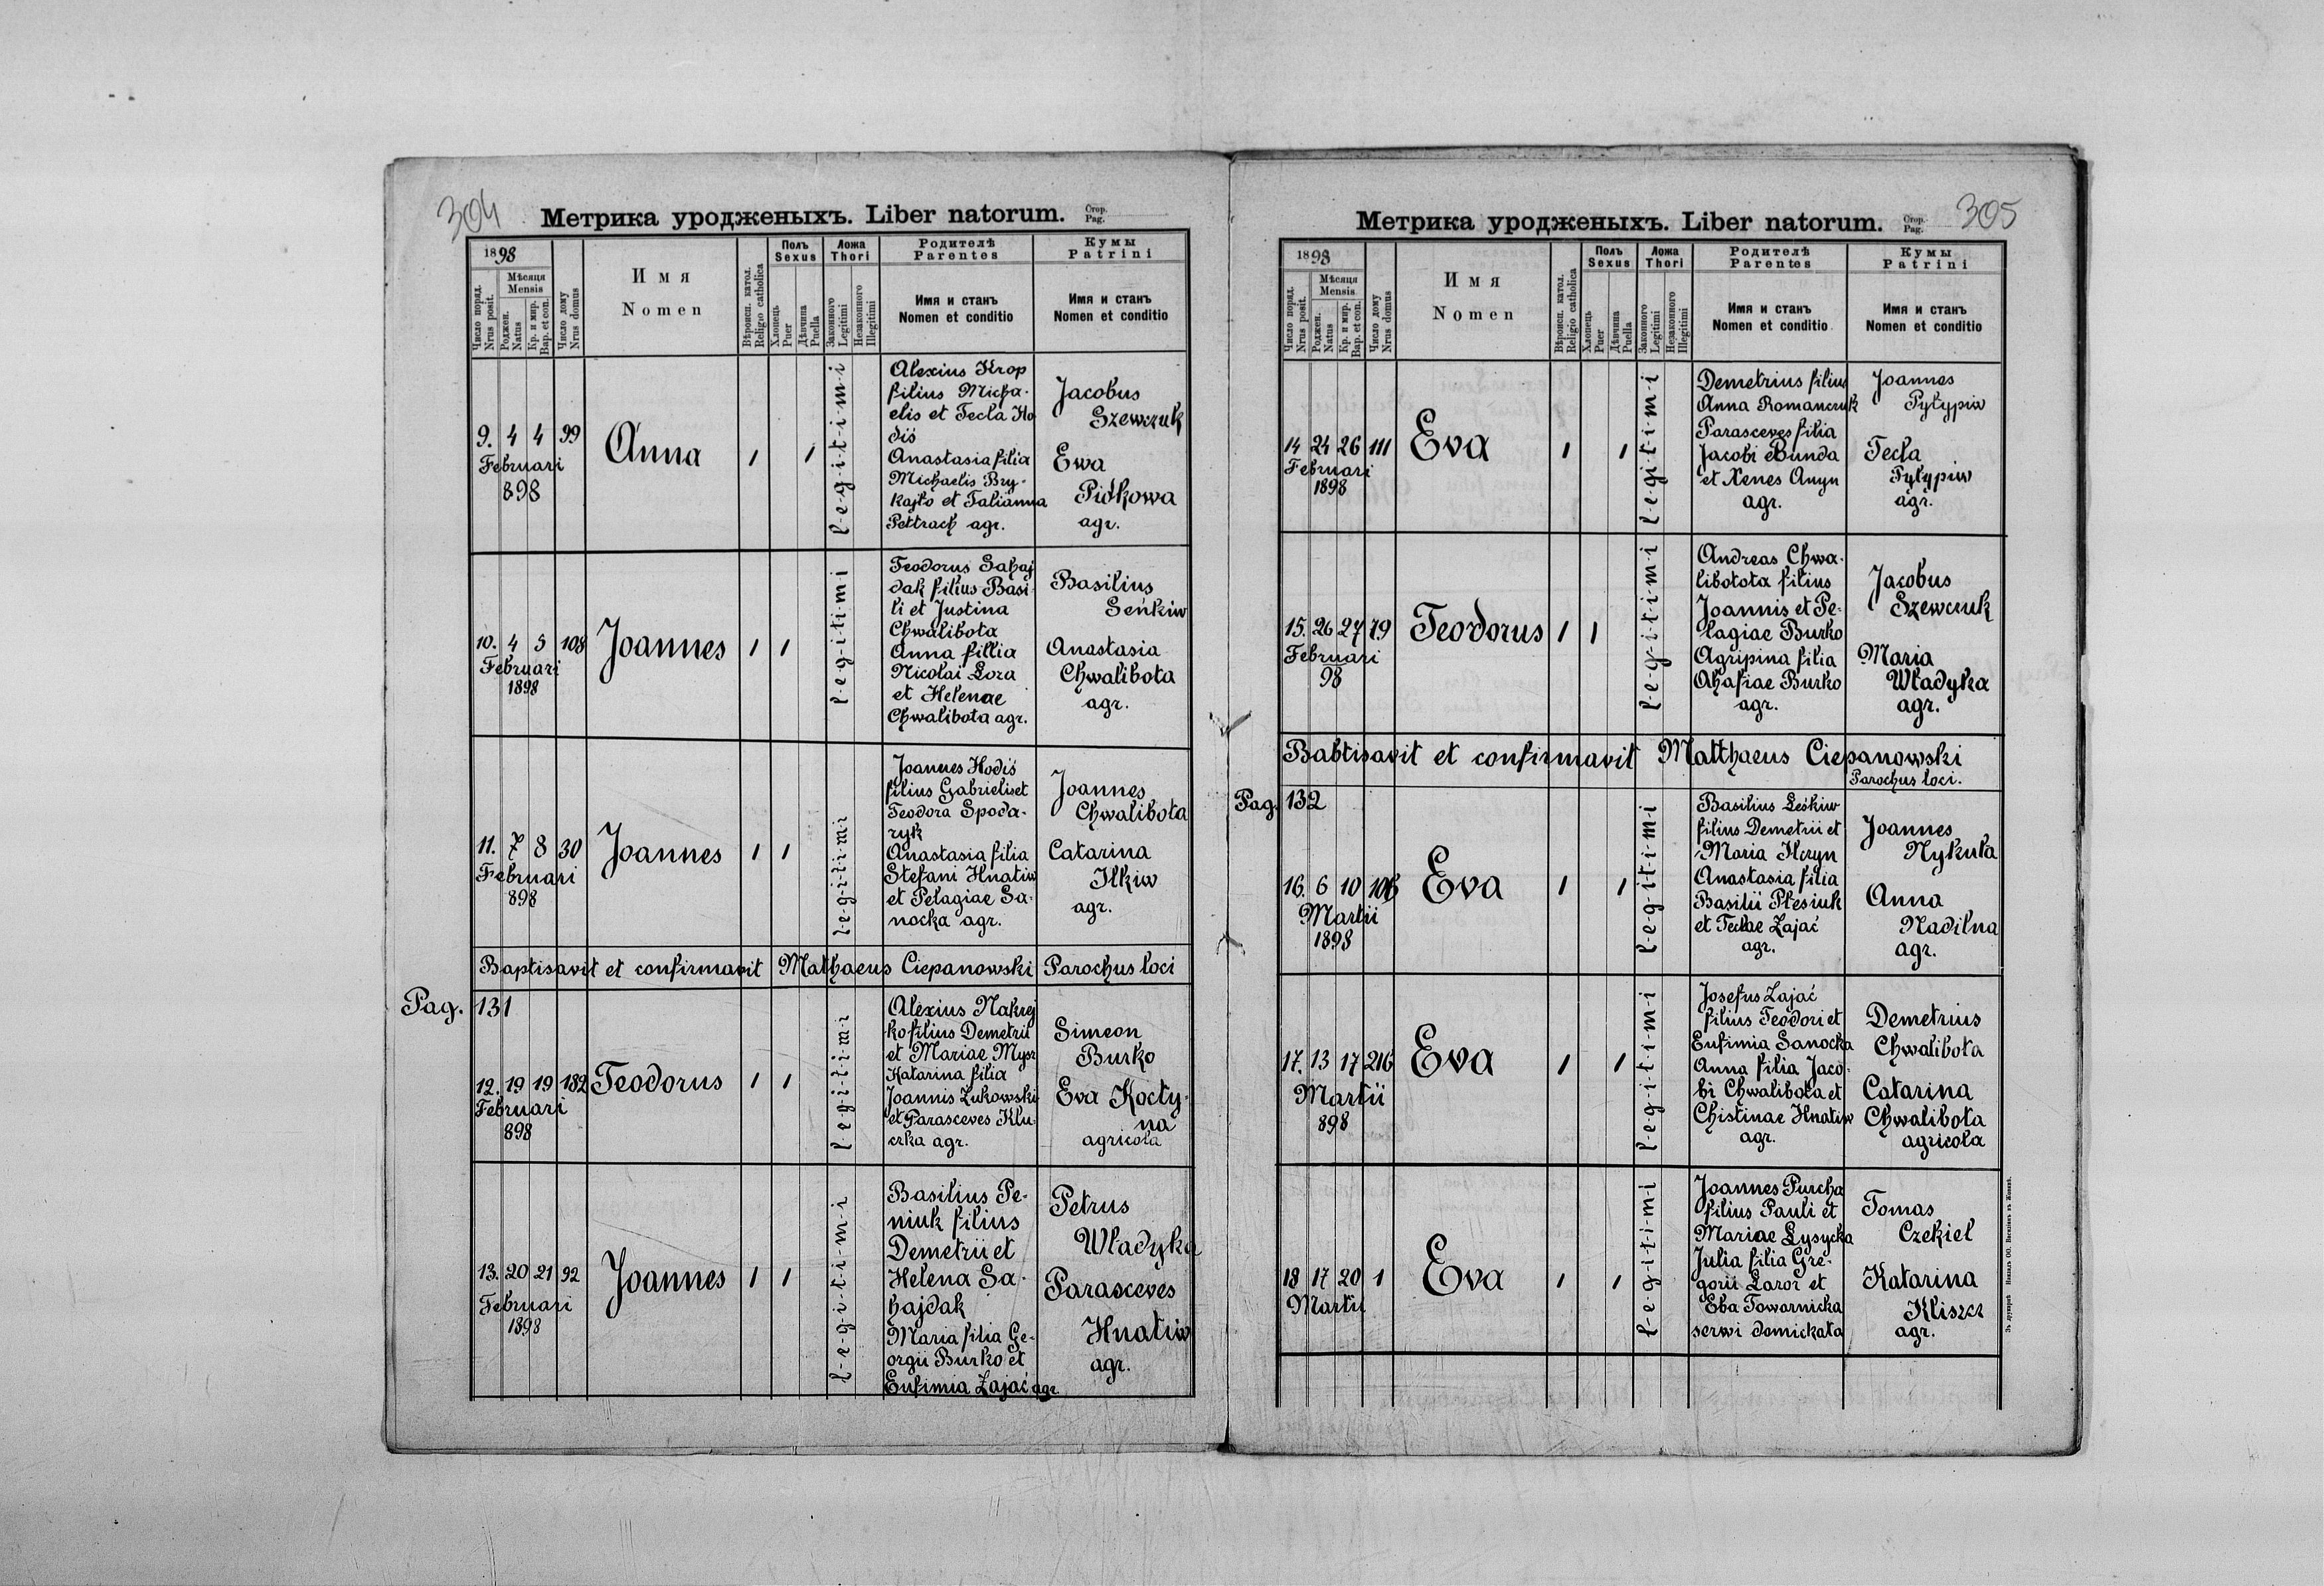 304
Метрика уродженыхъ. Liber natorum. Стор. Pag.
1898
Число поряд. Nrus posit.
Мѣсяця Mensis
Роджен. Natus
Кр. и мир. Bap. et con.
Число дому Nrus domus
Имя Nomen
Вѣроисп. катол. Religio catholica
Полъ Sexus
Хлопець Puer
Дѣвчина Puella
Ложа Thori
Законного Legitimi
Незаконного Illegitimi
Родителѣ Parentes
Имя и станъ Nomen et conditio
Кумы Patrini
Имя и станъ Nomen et conditio
9. 4 4 99
Februari
898
Anna
l-e-g-i-t-i-m-i
Alexius Krop
filius Micha-
elis et Tecla Ho
diś
Anastasia filia
Michaelis Bry-
kajło et Talianna
Pettrach agr.
Jacobus
Szewczuk
Ewa
Pidkowa
agr.
10. 4 5 108
Februari
1898
Joannes
l-e-g-i-t-i-m-i
Teodorus Sahaj
dak filius Basi
li et Justina
Chwalibota
Anna fillia
Nicolai Lora
et Helenae
Chwalibota agr.
Basilius
Seńkiw
Anastasia
Chwalibota
agr.
11. 7 8 30
Februari
898
Joannes
l-e-g-i-t-i-m-i
Joannes Hodiś
filius Gabrielis et
Teodora Spoda-
ryk
Anastasia filia
Stefani Hnatiw
et Pelagiae Sa-
nocka agr.
Joannes
Chwalibota
Catarina
Ilkiw
agr.
Baptisavit et confirmavit Mathaeus Ciepanowski Parochus loci
Pag. 131
12. 19 19 182
Februari
898
Teodorus
l-e-g-i-t-i-m-i
Alexius Nakrej
ko filius Demetrii
et Mariae Mysz
Katarina filia
Joannis Żukowski
et Parasceves Klu-
czka agr.
Simeon
Burko
Eva Kocty-
na
agricola
13. 20 21 92
Februari
1898
Joannes
l-e-g-i-t-i-m-i
Basilius Pe-
niuk filius
Demetrii et
Helena Sa-
hajdak
Maria filia Ge-
orgii Burko et
Eufimia Zajać agr
Petrus
Władyka
Parasceves
Hnatiw
agr.
305
Метрика уродженыхъ. Liber natorum. Стор. Pag.
1898
Число поряд. Nrus posit.
Мѣсяця Mensis
Роджен. Natus
Кр. и мир. Bap. et con.
Число дому Nrus domus
Имя Nomen
Вѣроисп. катол. Religio catholica
Полъ Sexus
Хлопець Puer
Дѣвчина Puella
Ложа Thori
Законного Legitimi
Незаконного Illegitimi
Родителѣ Parentes
Имя и станъ Nomen et conditio
Кумы Patrini
Имя и станъ Nomen et conditio
14 24 26 111
Februari
1898
Eva
l-e-g-i-t-i-m-i
Demetrius filius
Anna Romanczuk
Parasceves filia
Jacobi Bunda
et Xenes Anyn
agr.
Joannes
Pyłypiw
Tecla
Pyłypiw
agr.
15. 26 27 79
Februari
98
Teodorus
l-e-g-i-t-i-m-i
Andreas Chwa-
libotota filius
Joannis et Pe-
lagiae Burko
Agripina filia
Ahafiae Burko
agr.
Jacobus
Szewczuk
Maria
Władyka
agr.
Babtisavit et confirmavit Matthaeus Ciepanowski
Parochus loci.
Pag. 132
16. 6 10 106
Martii
1898
Eva
l-e-g-i-t-i-m-i
Basilius Leśkiw
filius Demetrii et
Maria Heryn
Anastasia filia
Basilii Płesiuk
et Teclae Zajać
agr.
Joannes
Nykuła
Anna
Nadilna
agr.
17. 13 17 216
Martii
898
Eva
l-e-g-i-t-i-m-i
Josefus Zajać
filius Teodori et
Eufimia Sanocka
Anna filia Jaco-
bi Chwalibota et
Chistinae Hnatiw
agr.
Demetrius
Chwalibota
Catarina
Chwalibota
agricola
18 17 20 1
Martii
Eva
l-e-g-i-t-i-m-i
Joannes Purcha
filius Pauli et
Mariae Łysycka
Julia filia Gre-
gorii Lazor et
Eba Towarnicka
serwi domickata
Tomas
Czekiel
Katarina
Kliszcz
agr.